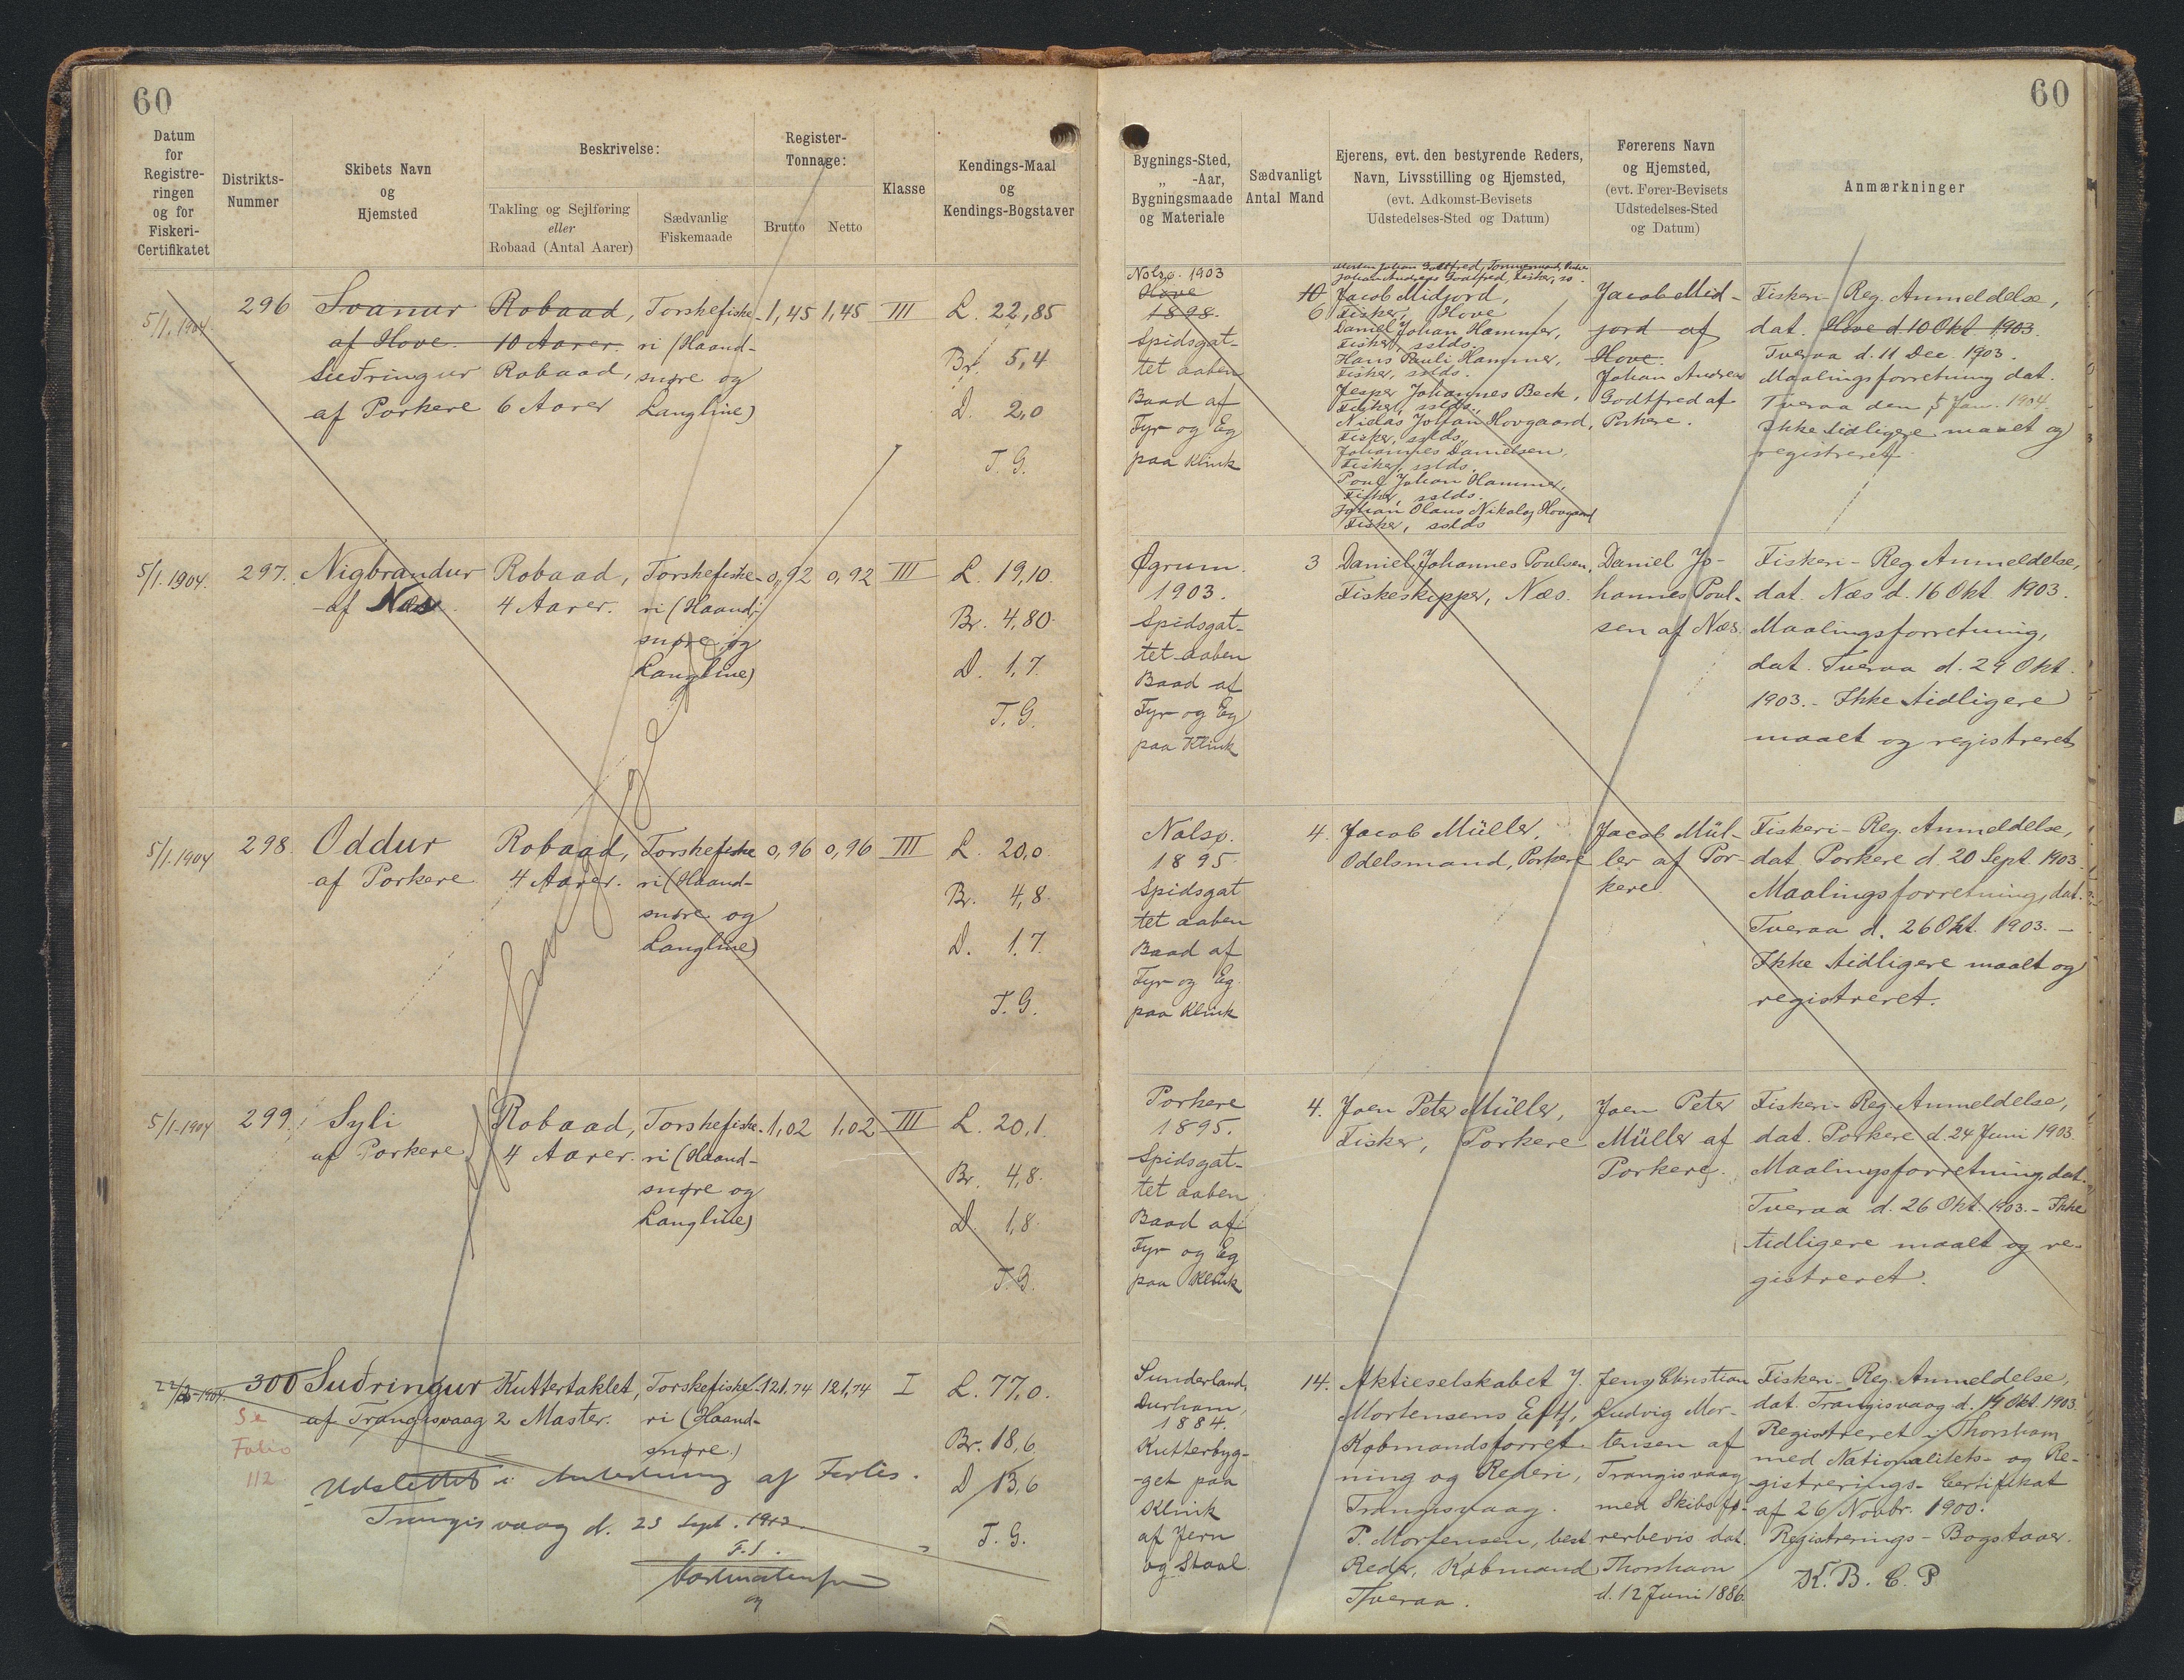 60
60
Datum
for
Registre-
ringen
og for
Fiskeri-
Certifikatet
Distrikts-
Nummer
Skibets Navn
og
Hjemsted
Beskrivelse:
Takling og Sejlføring
eller
Robaad (Antal Aarer)
Sædvanlig
Fiskemaade
Register-
Tonnage:
Brutto
Netto
Klasse
Kendings-Maal
og
Kendings-Bogstaver
Bygnings-Sted,
„ -Aar,
Bygningsmaade
og Materiale
Sædvanligt
Antal Mand
Ejerens, evt. den bestyrende Reders,
Navn, Livsstilling og Hjemsted,
(evt. Adkomst-Bevisets
Udstedelses-Sted og Datum)
Førerens Navn
og Hjemsted,
(evt. Fører-Bevisets
Udstedelses-Sted
og Datum)
Anmærkninger
5/1. 1904.
296
Svanur
af Hove.
Suðringur
af Porkere
Robaad,
10 Aarer.
Robaad,
6 Aarer
Torskefiske-
ri (Haand-
snøre og
Langline)
1,45
1,45
III
L. 22,85
Br. 5,4
D. 2,0
T. G.
Nolsø. 1903
Hove
1898.
Spidsgat-
tet aaben
Baad af
Fyr og Eg
paa Klink
10
6
Johan Andreas Godtfred, Fisker, so.
Jacob Midjord,
Fisker, Hove
Daniel Johan Hammer,
Fisker, sstds.
Hans Pauli Hammer,
Fisker, sstds.
Jesper Johannes Beck,
Fisker, sstds.
Niclas Johan Hovgaard,
Fisker, sstds.
Johannes Danielsen,
Fisker, sstds.
Poul Johan Hammer,
Fisker, sstds.
Johan Olaus Nikolaj Hovgaard
Fisker, sstds
Jacob Mid-
jord af
Hove.
Johan Andreas
Godtfred af
Porkere.
Fiskeri-Reg. Anmeldelse,
dat. Hove d. 10 Okt 1903.
Tveraa d. 11 Dec. 1903.
Maalingsforretning dat.
Tveraa den 5 Jan. 1904.
Ikke tidligere maalt og
registreret.
5/1. 1904.
297.
Nigbrandur
af Næs.
Robaad,
4 Aarer.
Torskefiske-
ri (Haand-
snøre og
Langline)
0,92
0,92
III
L. 19,10.
Br. 4,80.
D. 1,7.
T. G.
Øgrum.
1903.
Spidsgat-
tet aaben
Baad af
Fyr og Eg
paa Klink
3
Daniel Johannes Poulsen,
Fiskeskipper, Næs.
Daniel Jo-
hannes Poul-
sen af Næs.
Fiskeri-Reg Anmeldelse,
dat. Næs d. 16 Okt. 1903.
Maalingsforretning,
dat. Tveraa d. 29 Okt.
1903. - Ikke tidligere
maalt og registreret
5/1. 1904
298.
Oddur
af Porkere
Robaad,
4 Aarer.
Torskefiske
ri (Haand-
snøre og
Langline)
0,96
0,96
III
L. 20,0.
Br. 4,8.
D. 1,7.
T. G.
Nolsø.
1895.
Spidsgat
tet aaben
Baad af
Fyr og Eg
paa Klink
4.
Jacob Müller,
Odelsmand, Porkere
Jacob Mül-
ler af Por-
kere.
Fiskeri-Reg. Anmeldelse,
dat. Porkere d. 20 Sept. 1903
Maalingsforretning, dat.
Tveraa d. 26 Okt. 1903. -
Ikke tidligere maalt og
registreret.
5/1-1904
299.
Syli
af Porkere
Robaad,
4 Aarer.
Torskefiske-
ri (Haand-
snøre og
Langline)
1,02
1,02
III
L. 20,1.
Br. 4,8.
D. 1,8.
T. G.
Porkere
1895.
Spidsgat-
tet aaben
Baad af
Fyr og Eg
paa Klink
4.
Joen Peter Müller,
Fisker, Porkere
Joen Peter
Müller af
Porkere.
Fiskeri-Reg. Anmeldelse,
dat. Porkere d. 24 Juni 1903.
Maalingsforretning, dat.
Tveraa d. 26 Okt. 1903. - Ikke
tidligere maalt og re-
gistreret.
300
Se
Folio
112
Suðringur
af Trangisvaag
Kuttertaklet,
2 Master.
Torskefiske-
ri (Haand-
snøre)
121,74
121,74
I
L. 77,0.
Br. 18,6
D 13,6
T. G.
Udslettet i Anledning af Forlis.
Trangisvaag d. 23 Sept. 1913.
F. S.
Sunderland,
Durham,
1884.
Kutterbyg-
get paa
Klink
af Jern
og Staal.
14.
Aktieselskabet J.
Mortensens Eftf,
Købmandsforret-
ning og Rederi,
Trangisvaag.
P. Mortensen, best
Reder, Købmand
Tveraa.
Jens Christian
Ludvig Mor-
tensen af
Trangisvaag
med Skibsfø-
rerbevis dat.
Thorshavn
d. 12 Juni 1886.
Fiskeri-Reg. Anmeldelse,
dat. Trangisvaag d. 14 Okt. 1903.
Registreret i Thorshavn
med Nationalitets- og Re-
gistrerings-Certifikat
af 26 Novbr. 1900.
Registrerings-Bogstaver.
K. B. C. P